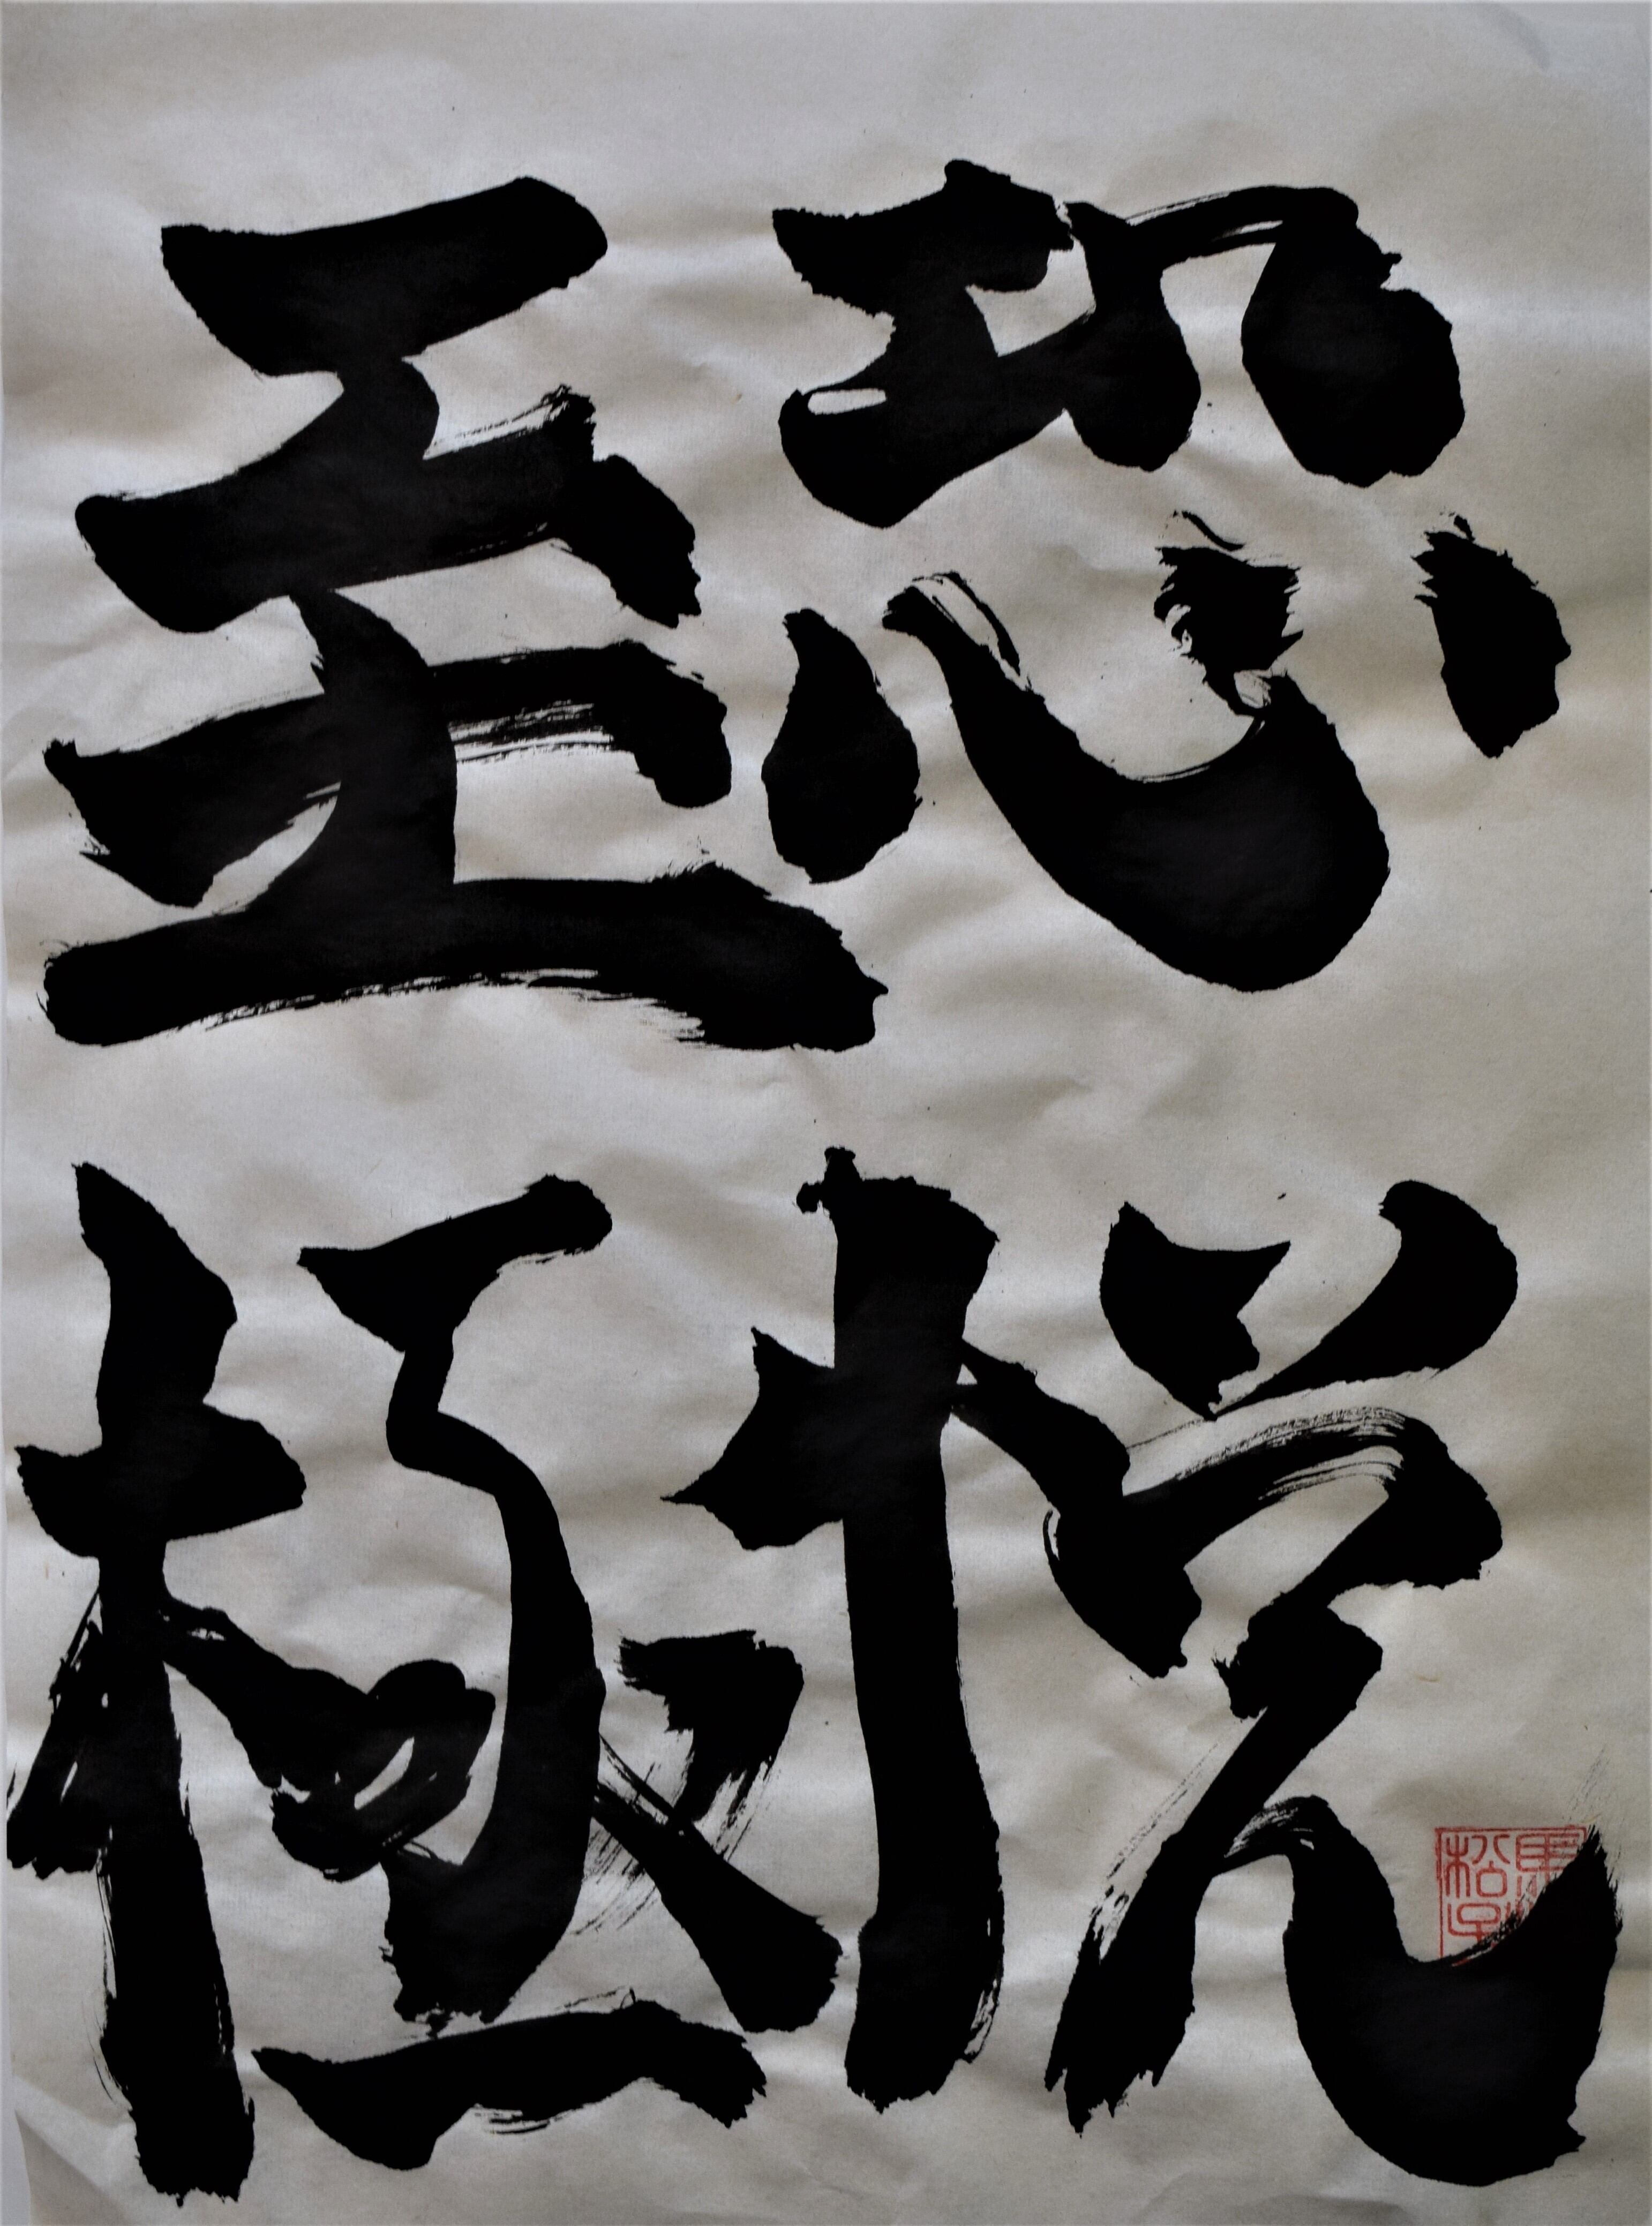 恐悦
至極